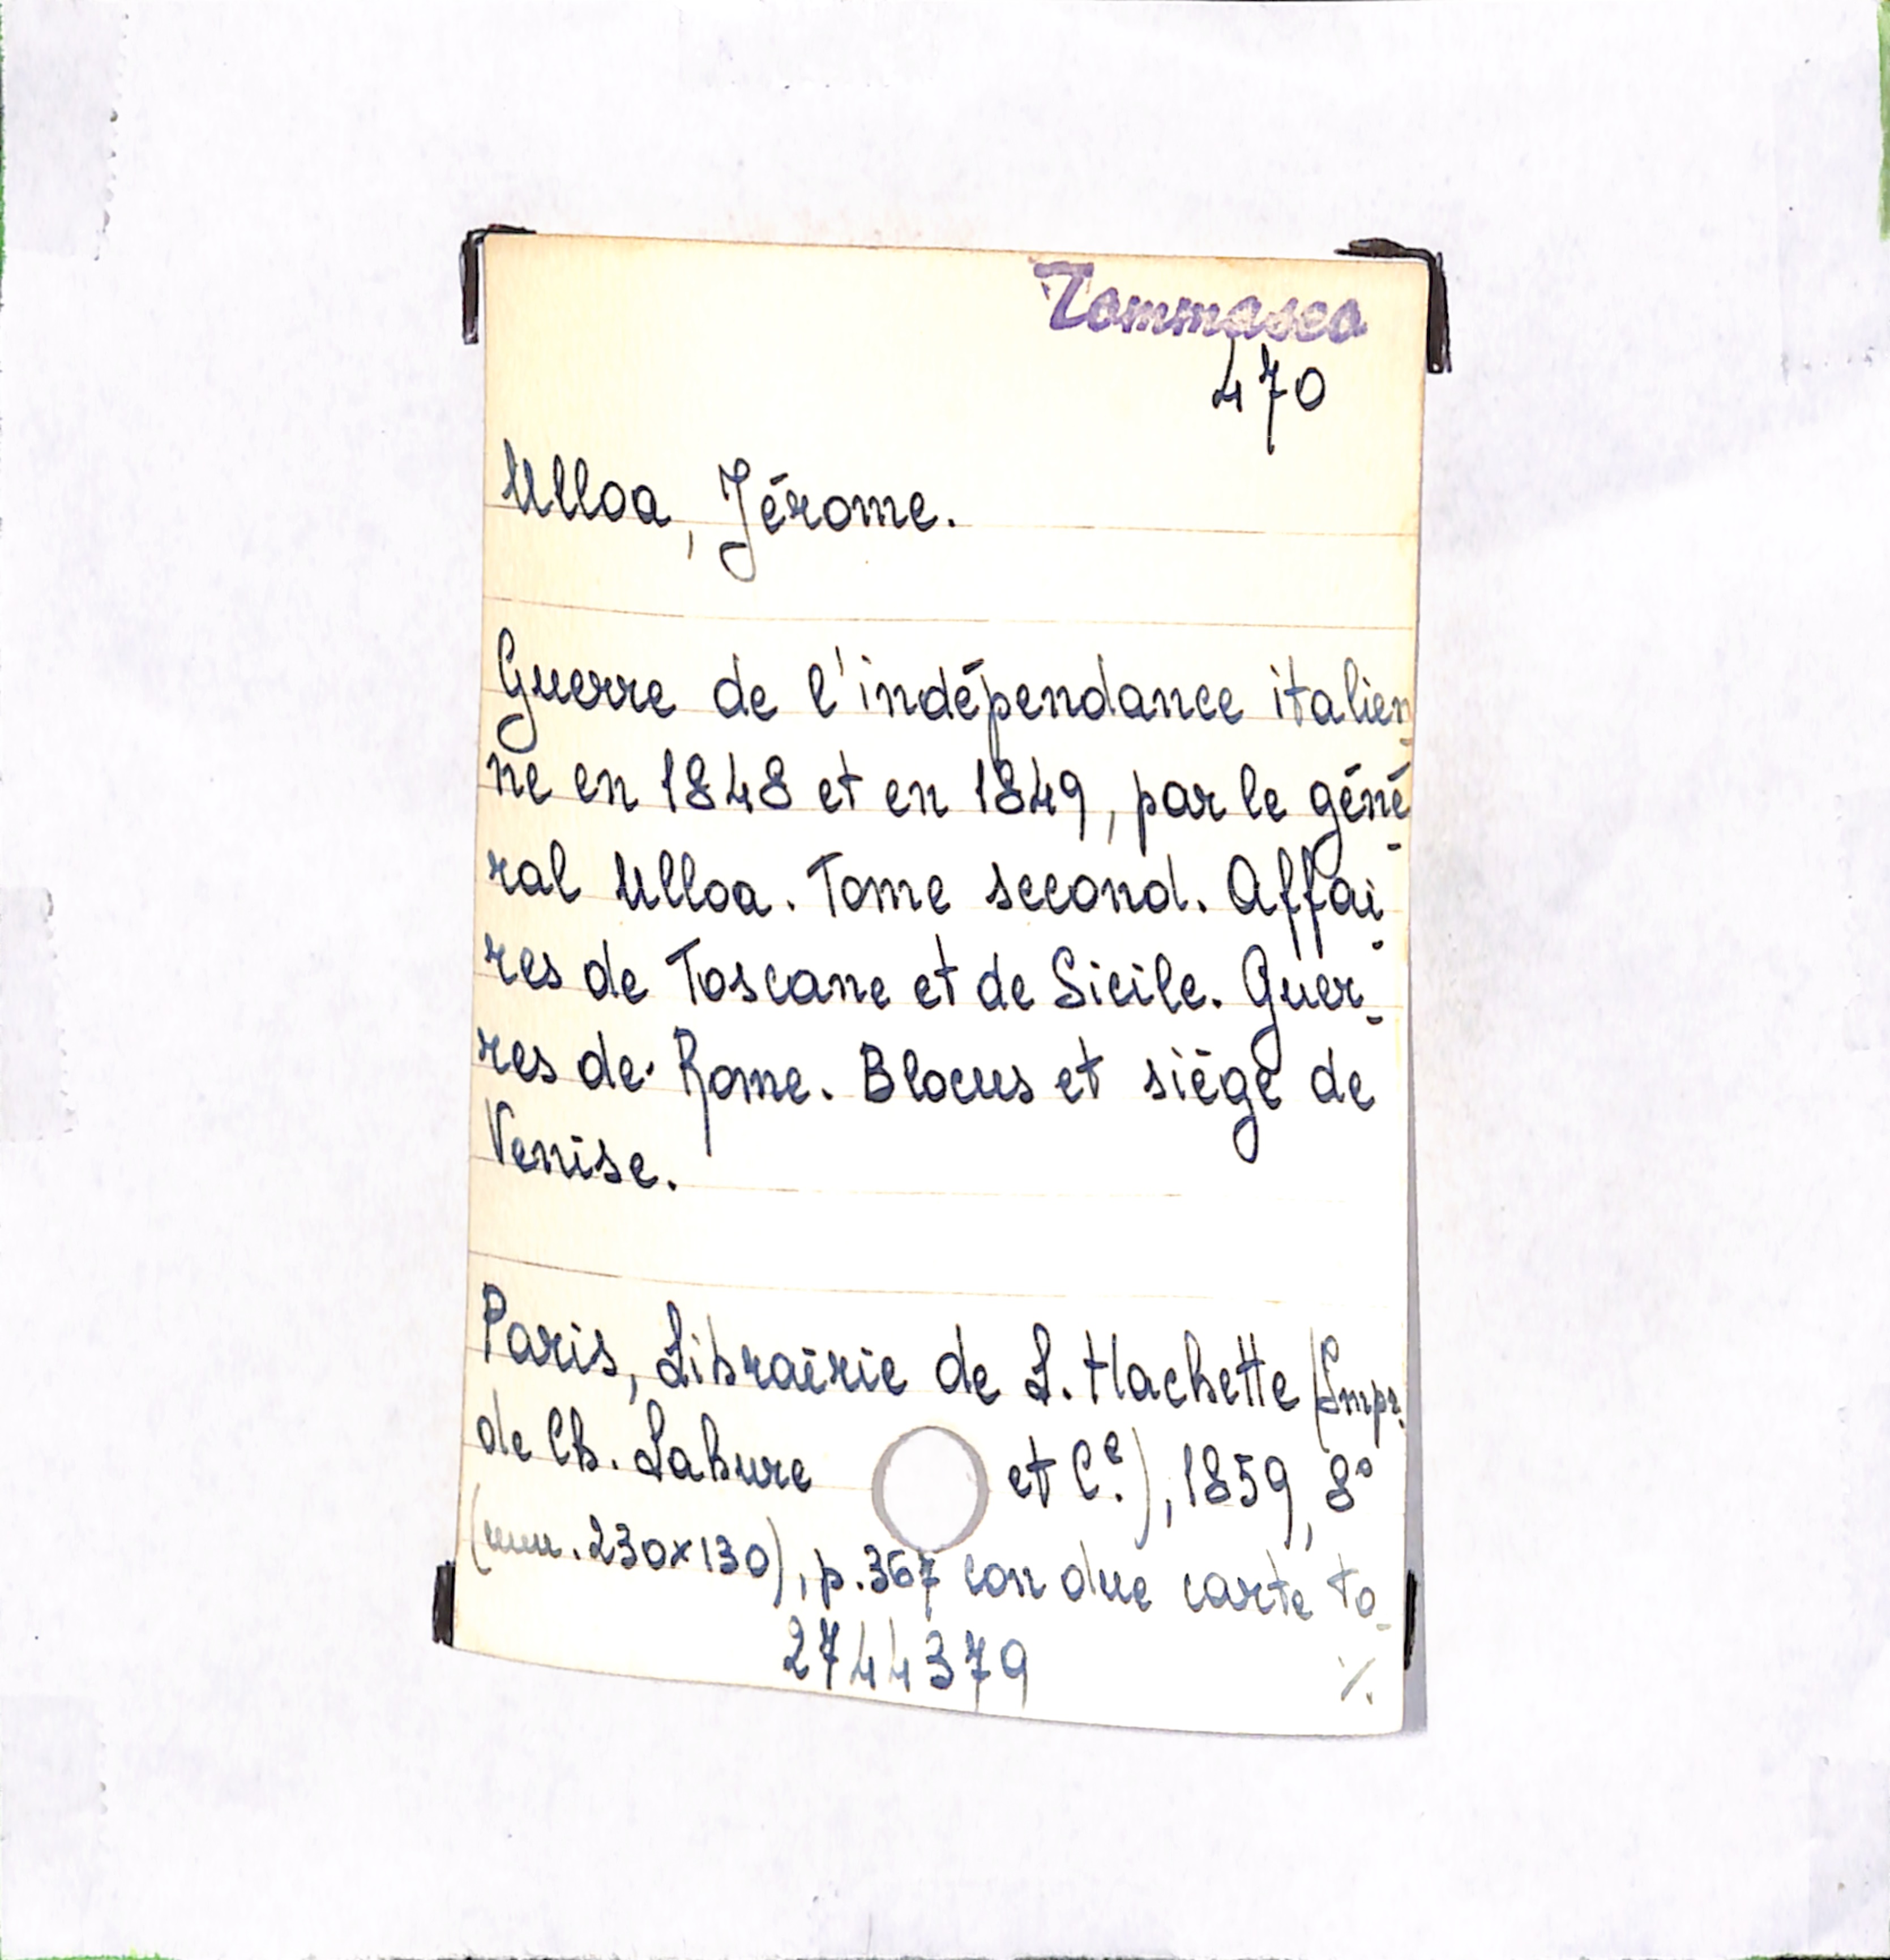 Tommaseo
470
Ulloa, Jérome.
Guerre de l'indépendance italien-
ne en 1848 et en 1849, par le géné-
ral Ulloa. Tome second. Affai-
res de Toscane et de Sicile. Guer-
res de Rome. Blocus et siège de
Venise.
Paris, Librairie de L. Hachette (Impr.
de Ch. Lahure et C.e), 1859, 8°
(mm. 230x130), p. 367 con due carte to-
2744379 ./.